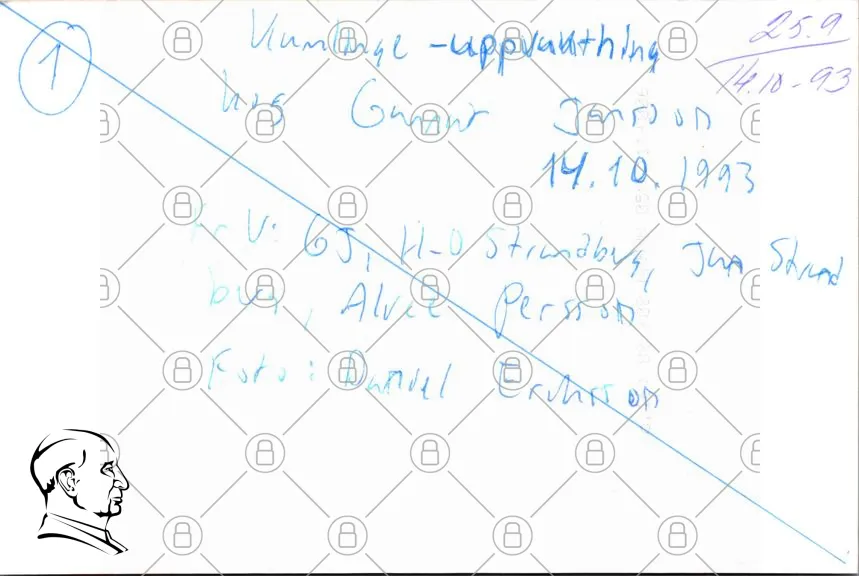 1
25.9
14.10-93
Kumlinge -uppvakthing
hos Gunnar Jansson
14.10.1993
Fr V: GJ, H-O Strandberg, Jan Strand
berg, Alvar Persson
Foto: Daniel Eriksson